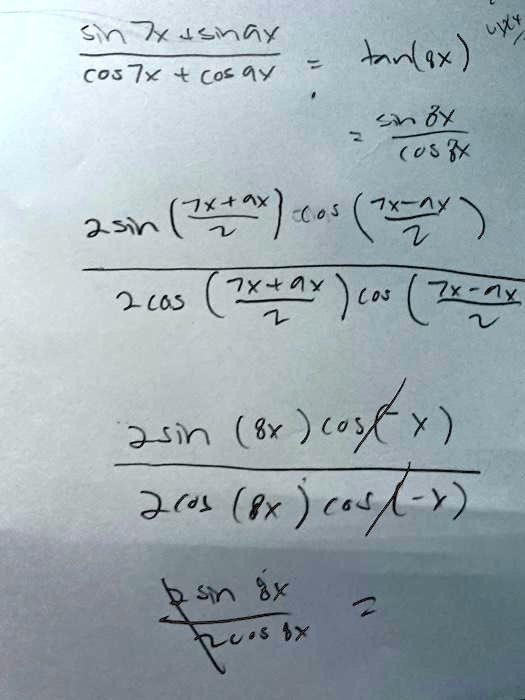 sin 7x + sin 9x / cos 7x + cos 9x = tan(8x)
= sin 8x / cos 8x
2 sin (7x+9x / 2) cos (7x-9x / 2)
2 cos (7x+9x / 2) cos (7x-9x / 2
2 sin (8x) cos(-x)
2 cos (8x) cos(-x)
2 sin 8x / 2 cos 8x =